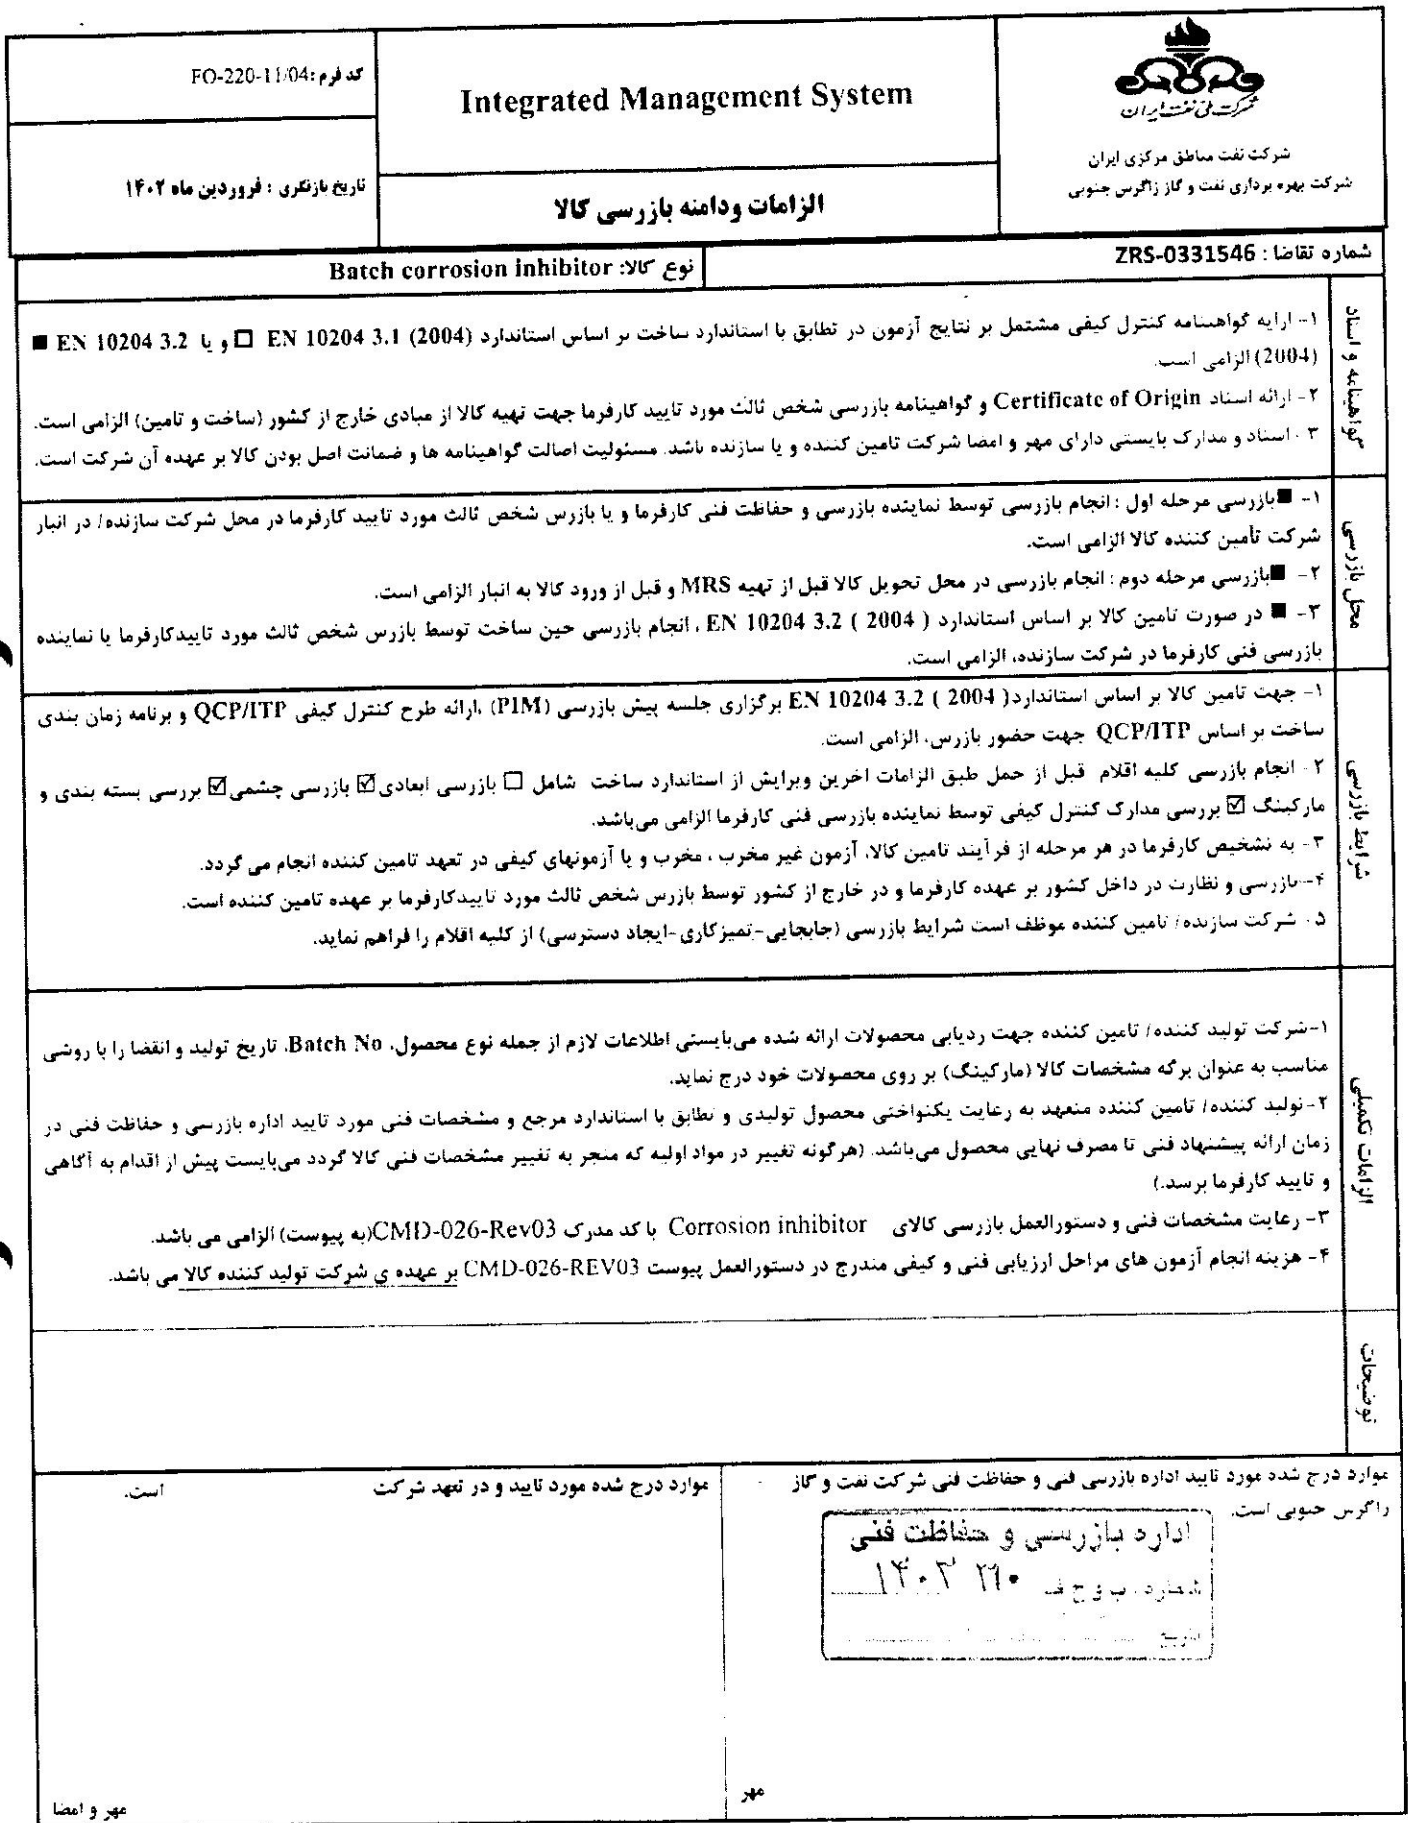 کد فرم :FO-220-11/04
Integrated Management System
شرکت ملی نفت ایران
شرکت نفت مناطق مرکزی ایران
شرکت بهره برداری نفت و گاز زاگرس جنوبی
تاریخ بازنگری : فروردین ماه ۱۴۰۲
الزامات ودامنه بازرسی کالا
شماره تقاضا : ZRS-0331546
نوع کالا: Batch corrosion inhibitor
گواهینامه و اسناد
۱- ارایه گواهینامه کنترل کیفی مشتمل بر نتایج آزمون در تطابق با استاندارد ساخت بر اساس استاندارد EN 10204 3.1 (2004) ☐ و یا EN 10204 3.2 ■
(2004) الزامی است.
۲- ارائه اسناد Certificate of Origin و گواهینامه بازرسی شخص ثالث مورد تایید کارفرما جهت تهیه کالا از مبادی خارج از کشور (ساخت و تامین) الزامی است.
۳- اسناد و مدارک بایستی دارای مهر و امضا شرکت تامین کننده و یا سازنده باشد. مسئولیت اصالت گواهینامه ها و ضمانت اصل بودن کالا بر عهده آن شرکت است.
محل بازرسی
۱- ■بازرسی مرحله اول : انجام بازرسی توسط نماینده بازرسی و حفاظت فنی کارفرما و یا بازرس شخص ثالث مورد تایید کارفرما در محل شرکت سازنده/ در انبار
شرکت تأمین کننده کالا الزامی است.
۲- ■بازرسی مرحله دوم : انجام بازرسی در محل تحویل کالا قبل از تهیه MRS و قبل از ورود کالا به انبار الزامی است.
۳- ■ در صورت تامین کالا بر اساس استاندارد EN 10204 3.2 ( 2004 ) ، انجام بازرسی حین ساخت توسط بازرس شخص ثالث مورد تاییدکارفرما یا نماینده
بازرسی فنی کارفرما در شرکت سازنده، الزامی است.
شرایط بازرسی
۱- جهت تامین کالا بر اساس استاندارد EN 10204 3.2 ( 2004 ) برگزاری جلسه پیش بازرسی (PIM) ،ارائه طرح کنترل کیفی QCP/ITP و برنامه زمان بندی
ساخت بر اساس QCP/ITP جهت حضور بازرس، الزامی است.
۲- انجام بازرسی کلیه اقلام قبل از حمل طبق الزامات اخرین ویرایش از استاندارد ساخت شامل ☐ بازرسی ابعادی ☑ بازرسی چشمی ☑ بررسی بسته بندی و
مارکینگ ☑ بررسی مدارک کنترل کیفی توسط نماینده بازرسی فنی کارفرما الزامی می‌باشد.
۳- به تشخیص کارفرما در هر مرحله از فرآیند تامین کالا، آزمون غیر مخرب ، مخرب و یا آزمونهای کیفی در تعهد تامین کننده انجام می گردد.
۴- بازرسی و نظارت در داخل کشور بر عهده کارفرما و در خارج از کشور توسط بازرس شخص ثالث مورد تاییدکارفرما بر عهده تامین کننده است.
۵- شرکت سازنده/ تامین کننده موظف است شرایط بازرسی (جابجایی-تمیزکاری-ایجاد دسترسی) از کلیه اقلام را فراهم نماید.
الزامات تکمیلی
۱-شرکت تولید کننده/ تامین کننده جهت ردیابی محصولات ارائه شده می‌بایستی اطلاعات لازم از جمله نوع محصول، Batch No، تاریخ تولید و انقضا را با روشی
مناسب به عنوان برگه مشخصات کالا (مارکینگ) بر روی محصولات خود درج نماید.
۲-تولید کننده/ تامین کننده متعهد به رعایت یکنواختی محصول تولیدی و تطابق با استاندارد مرجع و مشخصات فنی مورد تایید اداره بازرسی و حفاظت فنی در
زمان ارائه پیشنهاد فنی تا مصرف نهایی محصول می‌باشد. (هرگونه تغییر در مواد اولیه که منجر به تغییر مشخصات فنی کالا گردد می‌بایست پیش از اقدام به آگاهی
و تایید کارفرما برسد.)
۳- رعایت مشخصات فنی و دستورالعمل بازرسی کالای Corrosion inhibitor با کد مدرک CMD-026-Rev03(به پیوست) الزامی می باشد.
۴- هزینه انجام آزمون های مراحل ارزیابی فنی و کیفی مندرج در دستورالعمل پیوست CMD-026-REV03 بر عهده ی شرکت تولید کننده کالا می باشد.
توضیحات
موارد درج شده مورد تایید اداره بازرسی فنی و حفاظت فنی شرکت نفت و گاز
زاگرس جنوبی است.
موارد درج شده مورد تایید و در تعهد شرکت است.
اداره بازرسی و حفاظت فنی
شماره ب و ح ف
تاریخ
مهر
مهر و امضا